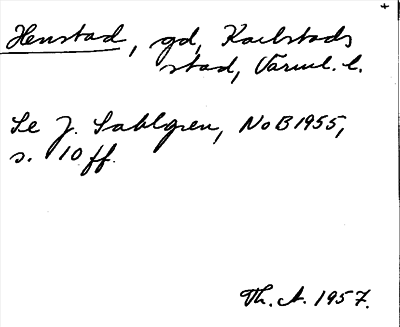 +
Henstad, gd, Karlstads
stad, Värml. l.
Se J. Sahlgren, NoB 1955,
s. 10 ff.
Th. A. 1957.